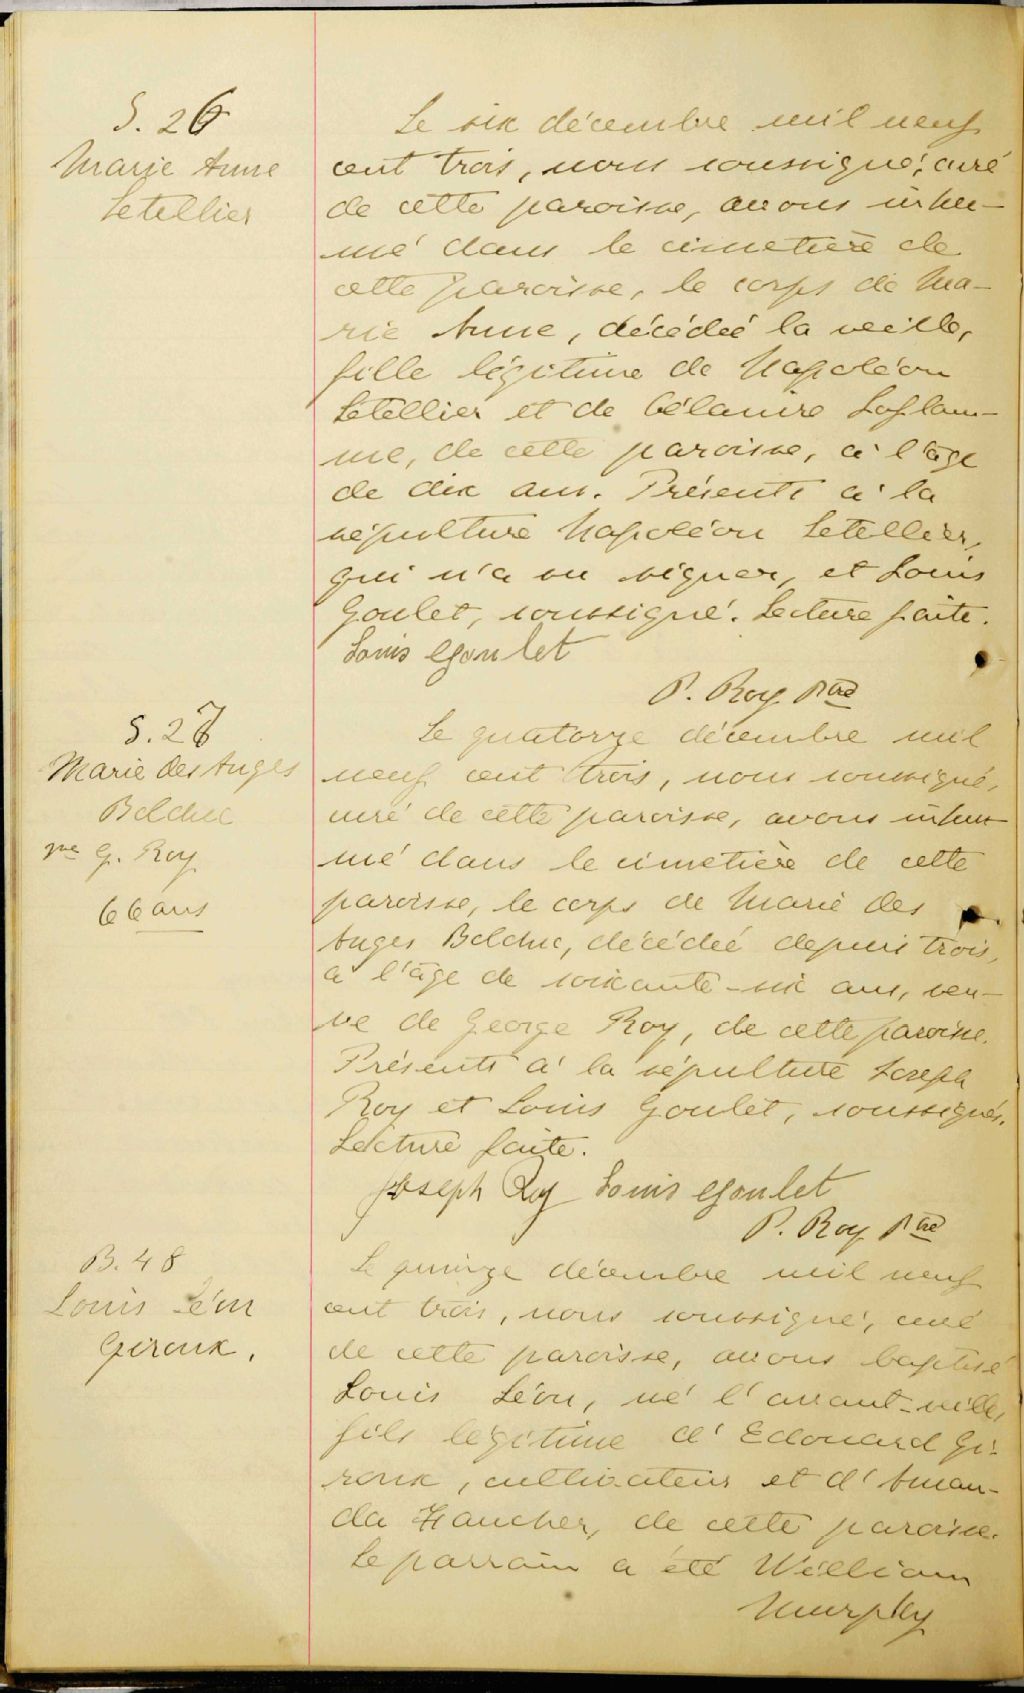 S. 26
Marie Anne
Letellier
Le six décembre mil neuf
cent trois, nous soussigné, curé
de cette paroisse, avons inhu-
mé dans le cimetière de
cette paroisse, le corps de Ma-
rie Anne, décédée la veille,
fille légitime de Napoléon
Letellier et de Célanire Laflam-
me, de cette paroisse, à l'âge
de dix ans. Présents à la
sépulture Napoléon Letellier,
qui n'a su signer, et Louis
Goulet, soussigné. Lecture faite.
Louis Goulet
P. Roy Ptre
S. 27
Marie des Anges
Bolduc
ve G. Roy
66 ans
Le quatorze décembre mil
neuf cent trois, nous soussigné,
curé de cette paroisse, avons inhu-
mé dans le cimetière de cette
paroisse, le corps de Marie des
Anges Bolduc, décédée depuis trois,
à l'âge de soixante-six ans, veu-
ve de George Roy, de cette paroisse.
Présents à la sépulture Joseph
Roy et Louis Goulet, soussignés.
Lecture faite.
Joseph Roy Louis Goulet
P. Roy Ptre
B. 48
Louis Léon
Giroux.
Le quinze décembre mil neuf
cent trois, nous soussigné, curé
de cette paroisse, avons baptisé
Louis Léon, né l'avant-veille,
fils légitime d'Edouard Gi-
roux, cultivateur et d'Aman-
da Faucher, de cette paroisse.
Le parrain a été William
Murphy